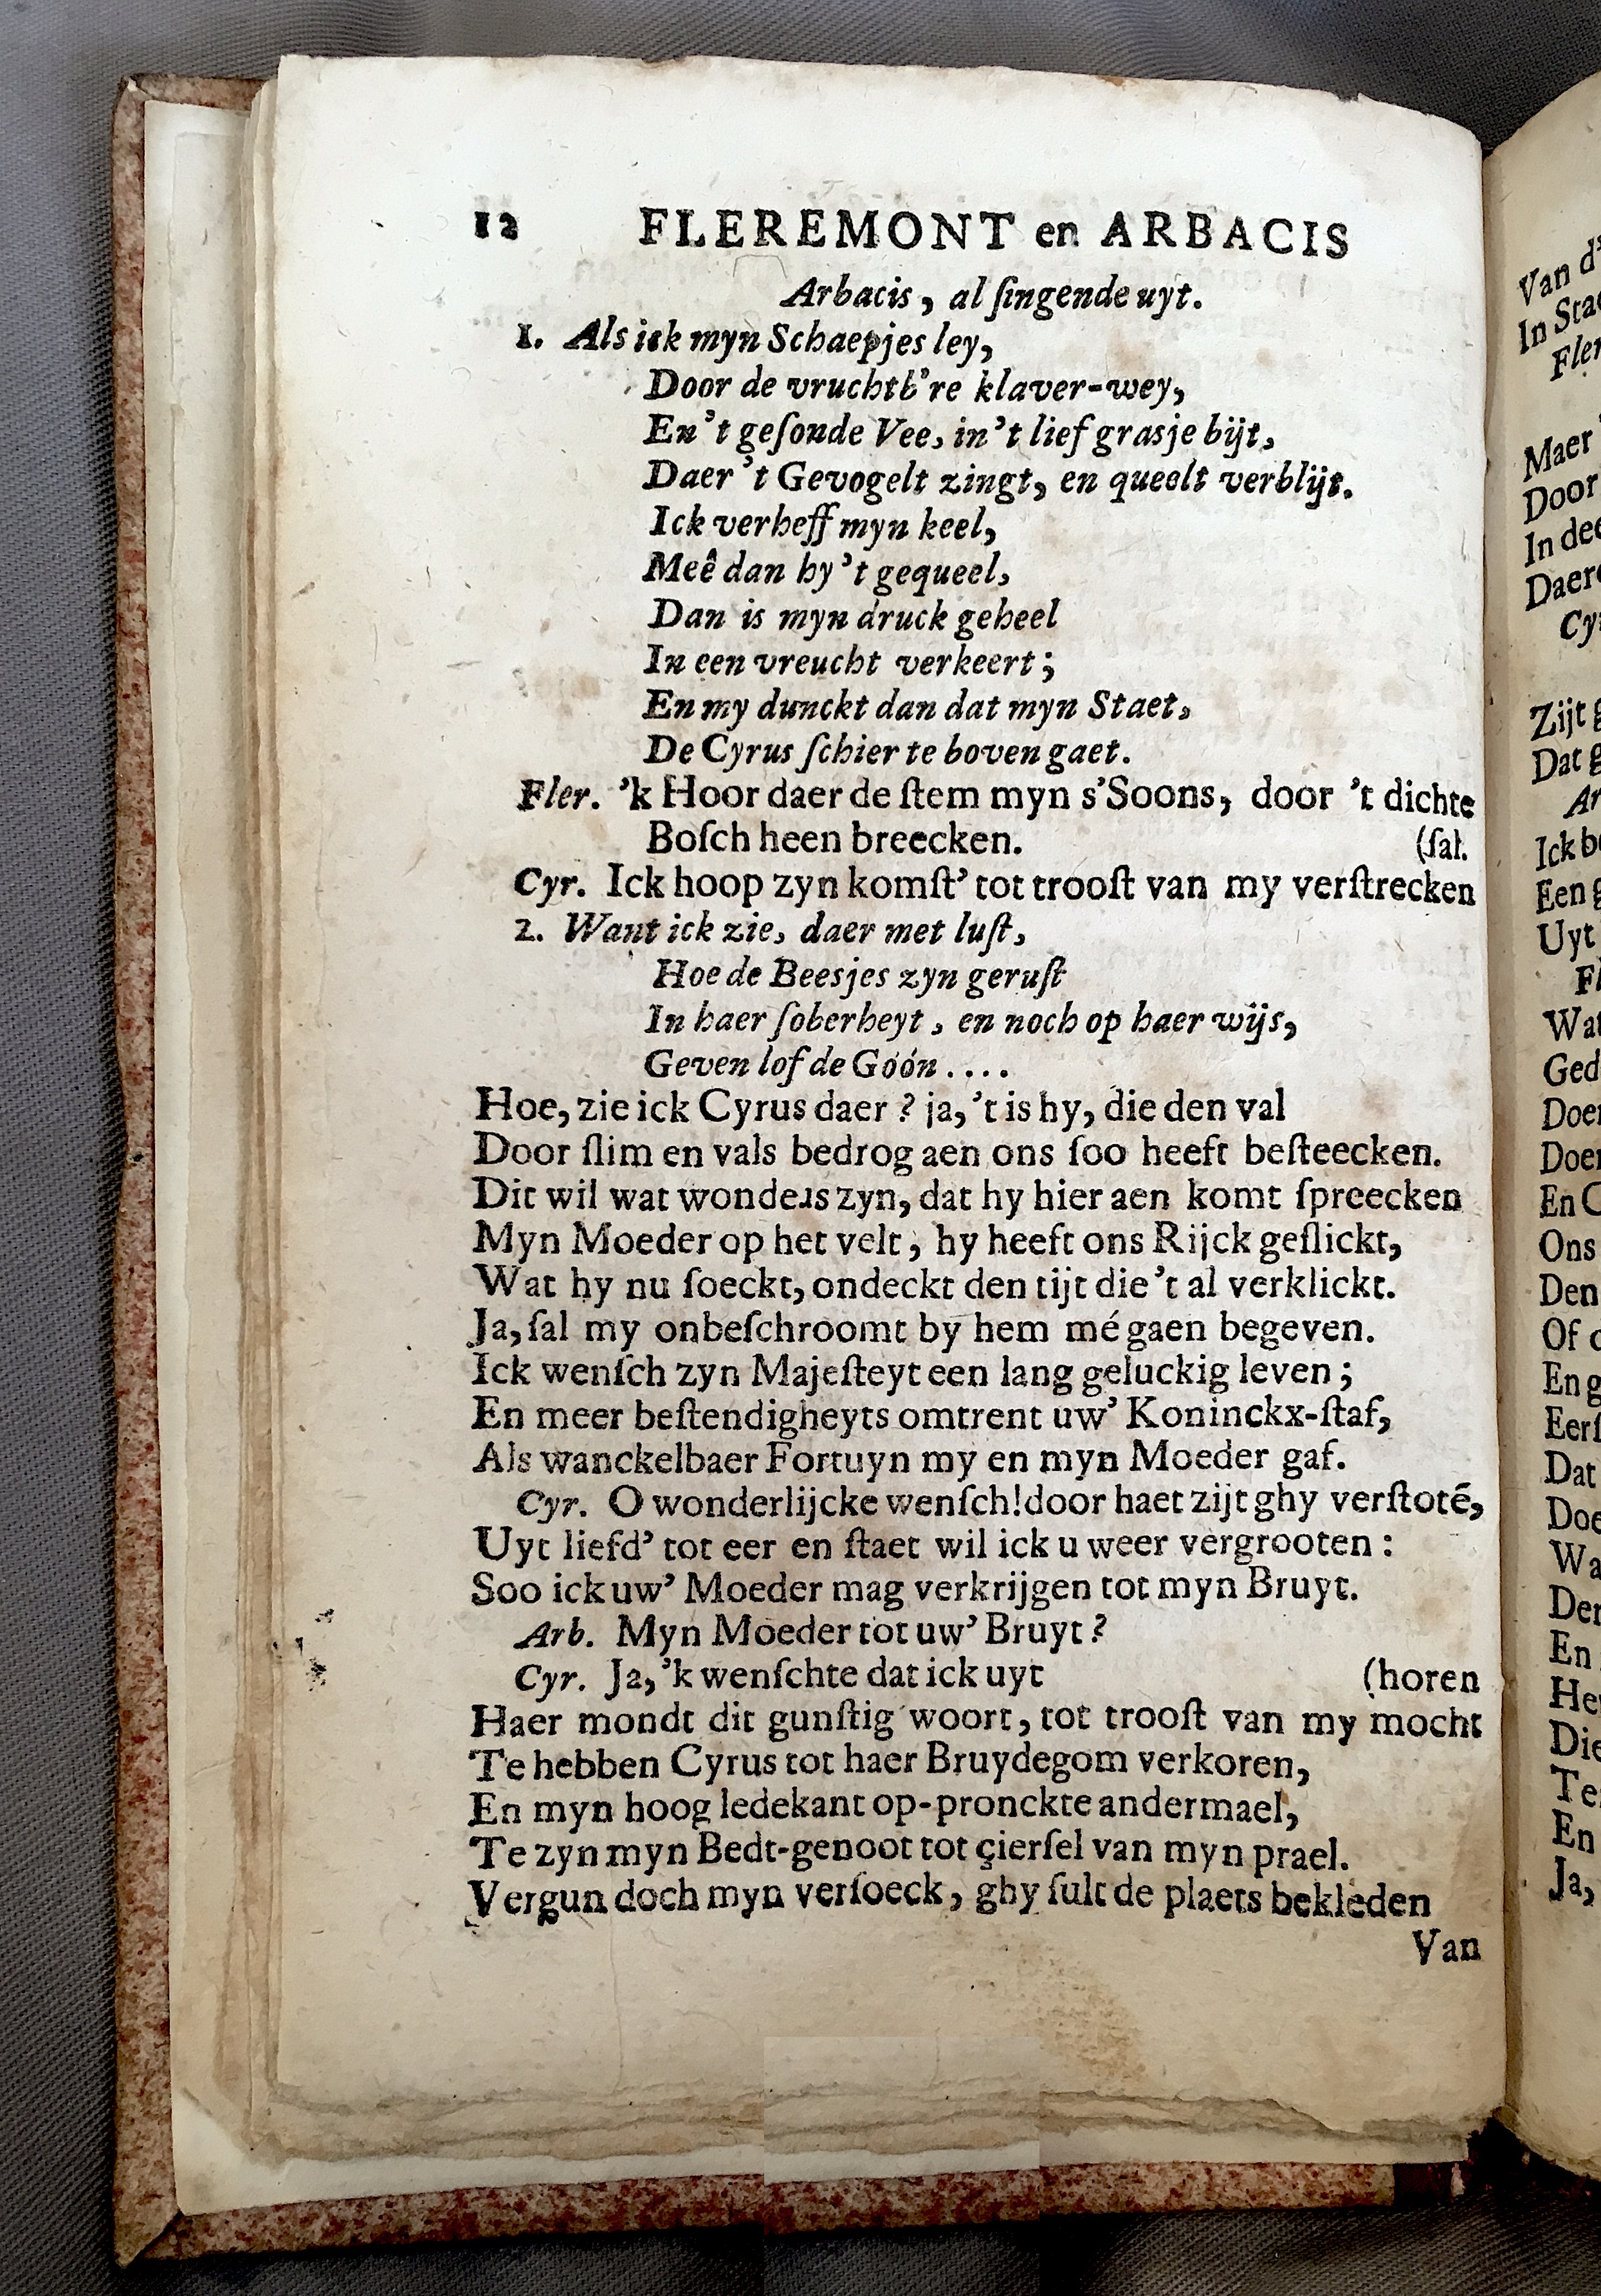 12 FLEREMONT en ARBACIS
Arbacis, al ſingende uyt.
1. Als ick myn Schaepjes ley,
Door de vruchtb're klaver-wey,
En't geſonde Vee, in't lief grasje bijt,
Daer 't Gevogelt zingt, en queelt verblijt.
Ick verheff myn keel,
Meê dan by 't gequeel,
Dan is myn druck geheel
In een vreucht verkeert;
En my dunckt dan dat myn Staet,
De Cyrus ſchier te boven gaet.
Fler. 'k Hoor daer de ſtem myn s'Soons, door 't dichte
Boſch heen breecken. (ſal.
Cyr. Ick hoop zyn komſt' tot trooſt van my verſtrecken
2. Want ick zie, daer met luſt,
Hoe de Beesjes zyn geruſt
In haer ſoberheyt, en noch op haer wijs,
Geven lof de Góón....
Hoe, zie ick Cyrus daer? ja, 't is hy, die den val
Door ſlim en vals bedrog aen ons ſoo heeft beſteecken.
Dit wil wat wonders zyn, dat hy hier aen komt ſpreecken
Myn Moeder op het velt, hy heeft ons Rijck geſlickt,
Wat hy nu ſoeckt, ondeckt den tijt die 't al verklickt.
Ja, ſal my onbeſchroomt by hem mé gaen begeven.
Ick wenſch zyn Majeſteyt een lang geluckig leven;
En meer beſtendigheyts omtrent uw' Koninckx-ſtaf,
Als wanckelbaer Fortuyn my en myn Moeder gaf.
Cyr. O wonderlijcke wenſch! door haet zijt ghy verſtotē,
Uyt liefd' tot eer en ſtaet wil ick u weer vergrooten:
Soo ick uw' Moeder mag verkrijgen tot myn Bruyt.
Arb. Myn Moeder tot uw' Bruyt?
Cyr. Ja, 'k wenſchte dat ick uyt (horen
Haer mondt dit gunſtig woort, tot trooſt van my mocht
Te hebben Cyrus tot haer Bruydegom verkoren,
En myn hoog ledekant op-pronckte andermael,
Te zyn myn Bedt-genoot tot çierſel van myn prael.
Vergun doch myn verſoeck, ghy ſult de plaets bekleden
Van
Van d'
In Sta
Fler
Maer
Door
In dee
Daer
Cy
Zijt g
Dat g
Ar
Ick b
Een g
Uyt
Fl
Wat
Ged
Doe
Doe
En C
Ons
Den
Of
En g
Eerſ
Dat
Doe
Wa
Der
En
He
Die
Te
En
Ja,